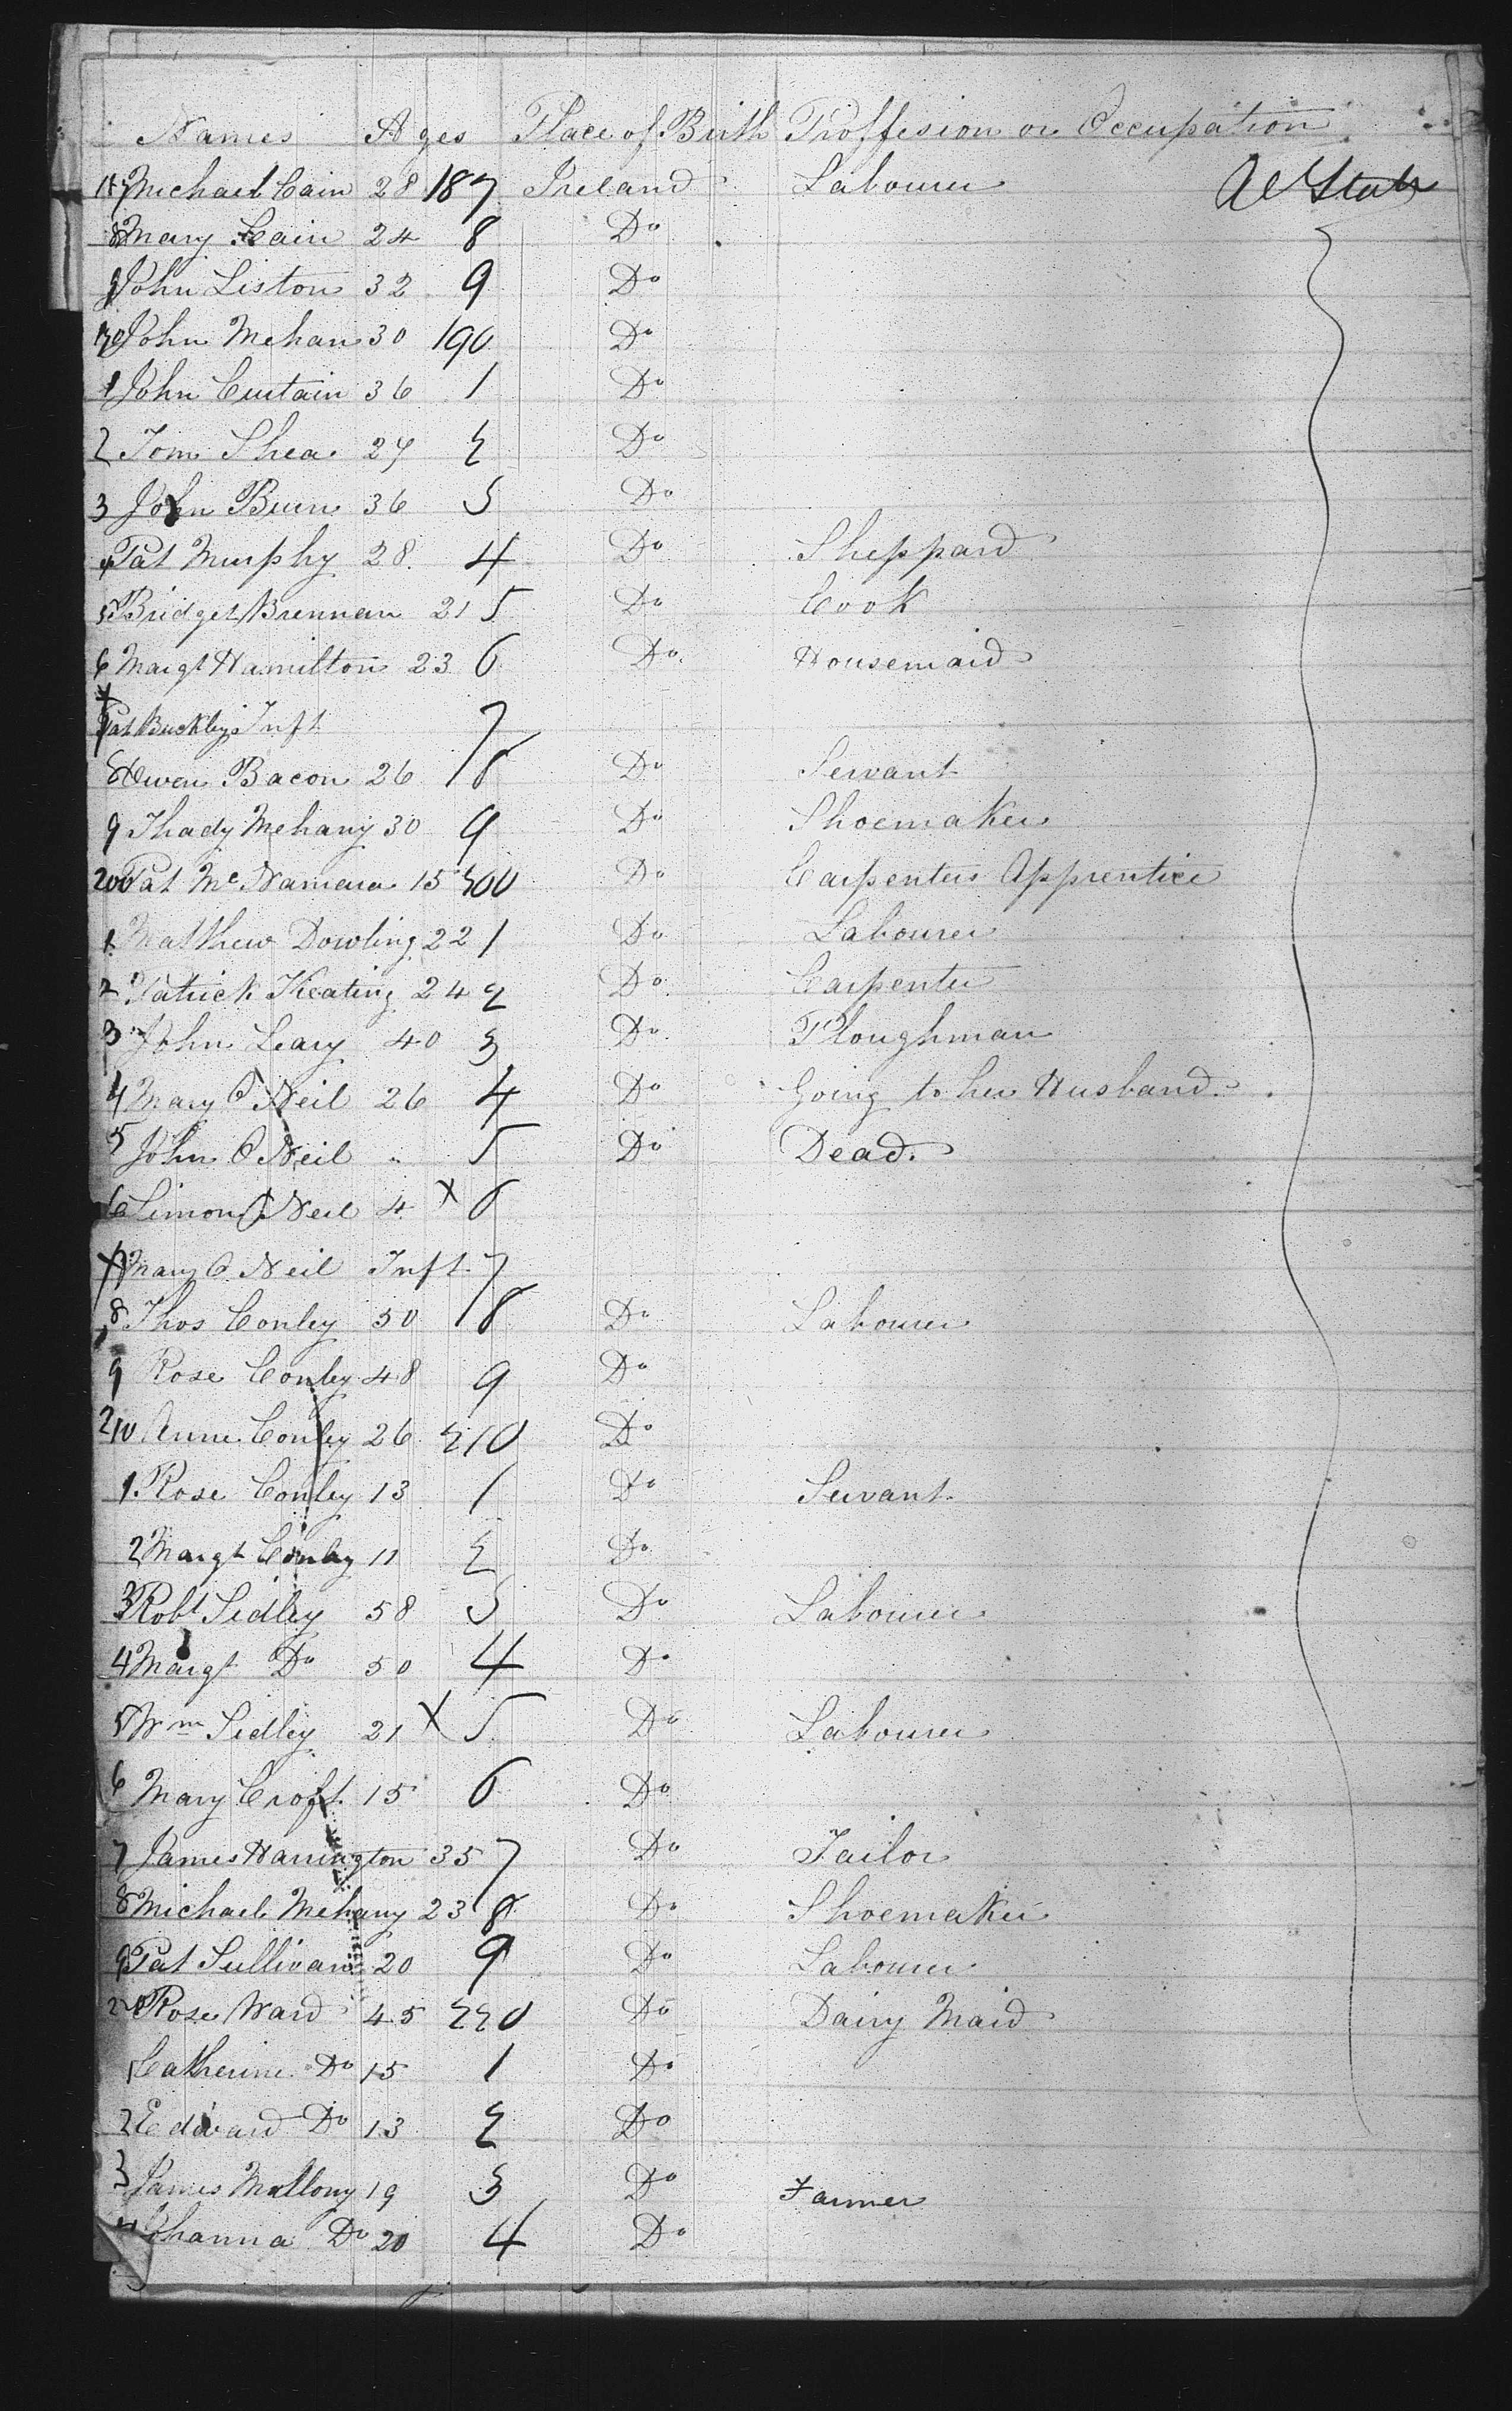 Names Ages Place of Birth Proffesion or Occupation
187 Michael Cain 28 187 Ireland Labourer U States
8 Mary Cain 24 8 Do
9 John Liston 32 9 Do
190 John Mehan 30 190 Do
1 John Curtain 36 1 Do
2 Tom Shea 27 2 Do
3 John Burn 36 3 Do
4 Pat Murphy 28 4 Do Sheppard
5 Bridget Brennan 21 5 Do Cook
6 Margt Hamilton 23 6 Do Housemaid
7 Pat Buckleys Inft 7
8 Owen Bacon 26 8 Do Servant
9 Thady Mehany 30 9 Do Shoemaker
200 Pat McNamara 15 200 Do Carpenters Apprentice
1 Matthew Dowling 22 1 Do Labourer
2 Patrick Keating 24 2 Do Carpenter
3 John Leary 40 3 Do Ploughman
4 Mary O Neil 26 4 Do Going to her Husband
5 John O Neil " 5 Do Dead
6 Simon O Neil 4 x 6
x 7 Mary O Neil Inft 7
8 Thos Conley 50 8 Do Labourer
9 Rose Conley 48 9 Do
210 Anne Conley 26 210 Do
1 Rose Conley 13 1 Do Servant
2 Margt Conley 11 2 Do
3 Robt Sidley 58 3 Do Labourer
4 Margt Do 50 4 Do
5 Wm Sidley 21 x 5 Do Labourer
6 Mary Croft 15 6 Do
7 James Harrington 35 7 Do Tailor
8 Michael Mehany 23 8 Do Shoemaker
9 Pat Sullivan 20 9 Do Labourer
220 Rose Ward 45 220 Do Dairy Maid
1 Catherine Do 15 1 Do
2 Edward Do 13 2 Do
3 James Mallony 19 3 Do Farmer
4 Johanna Do 20 4 Do